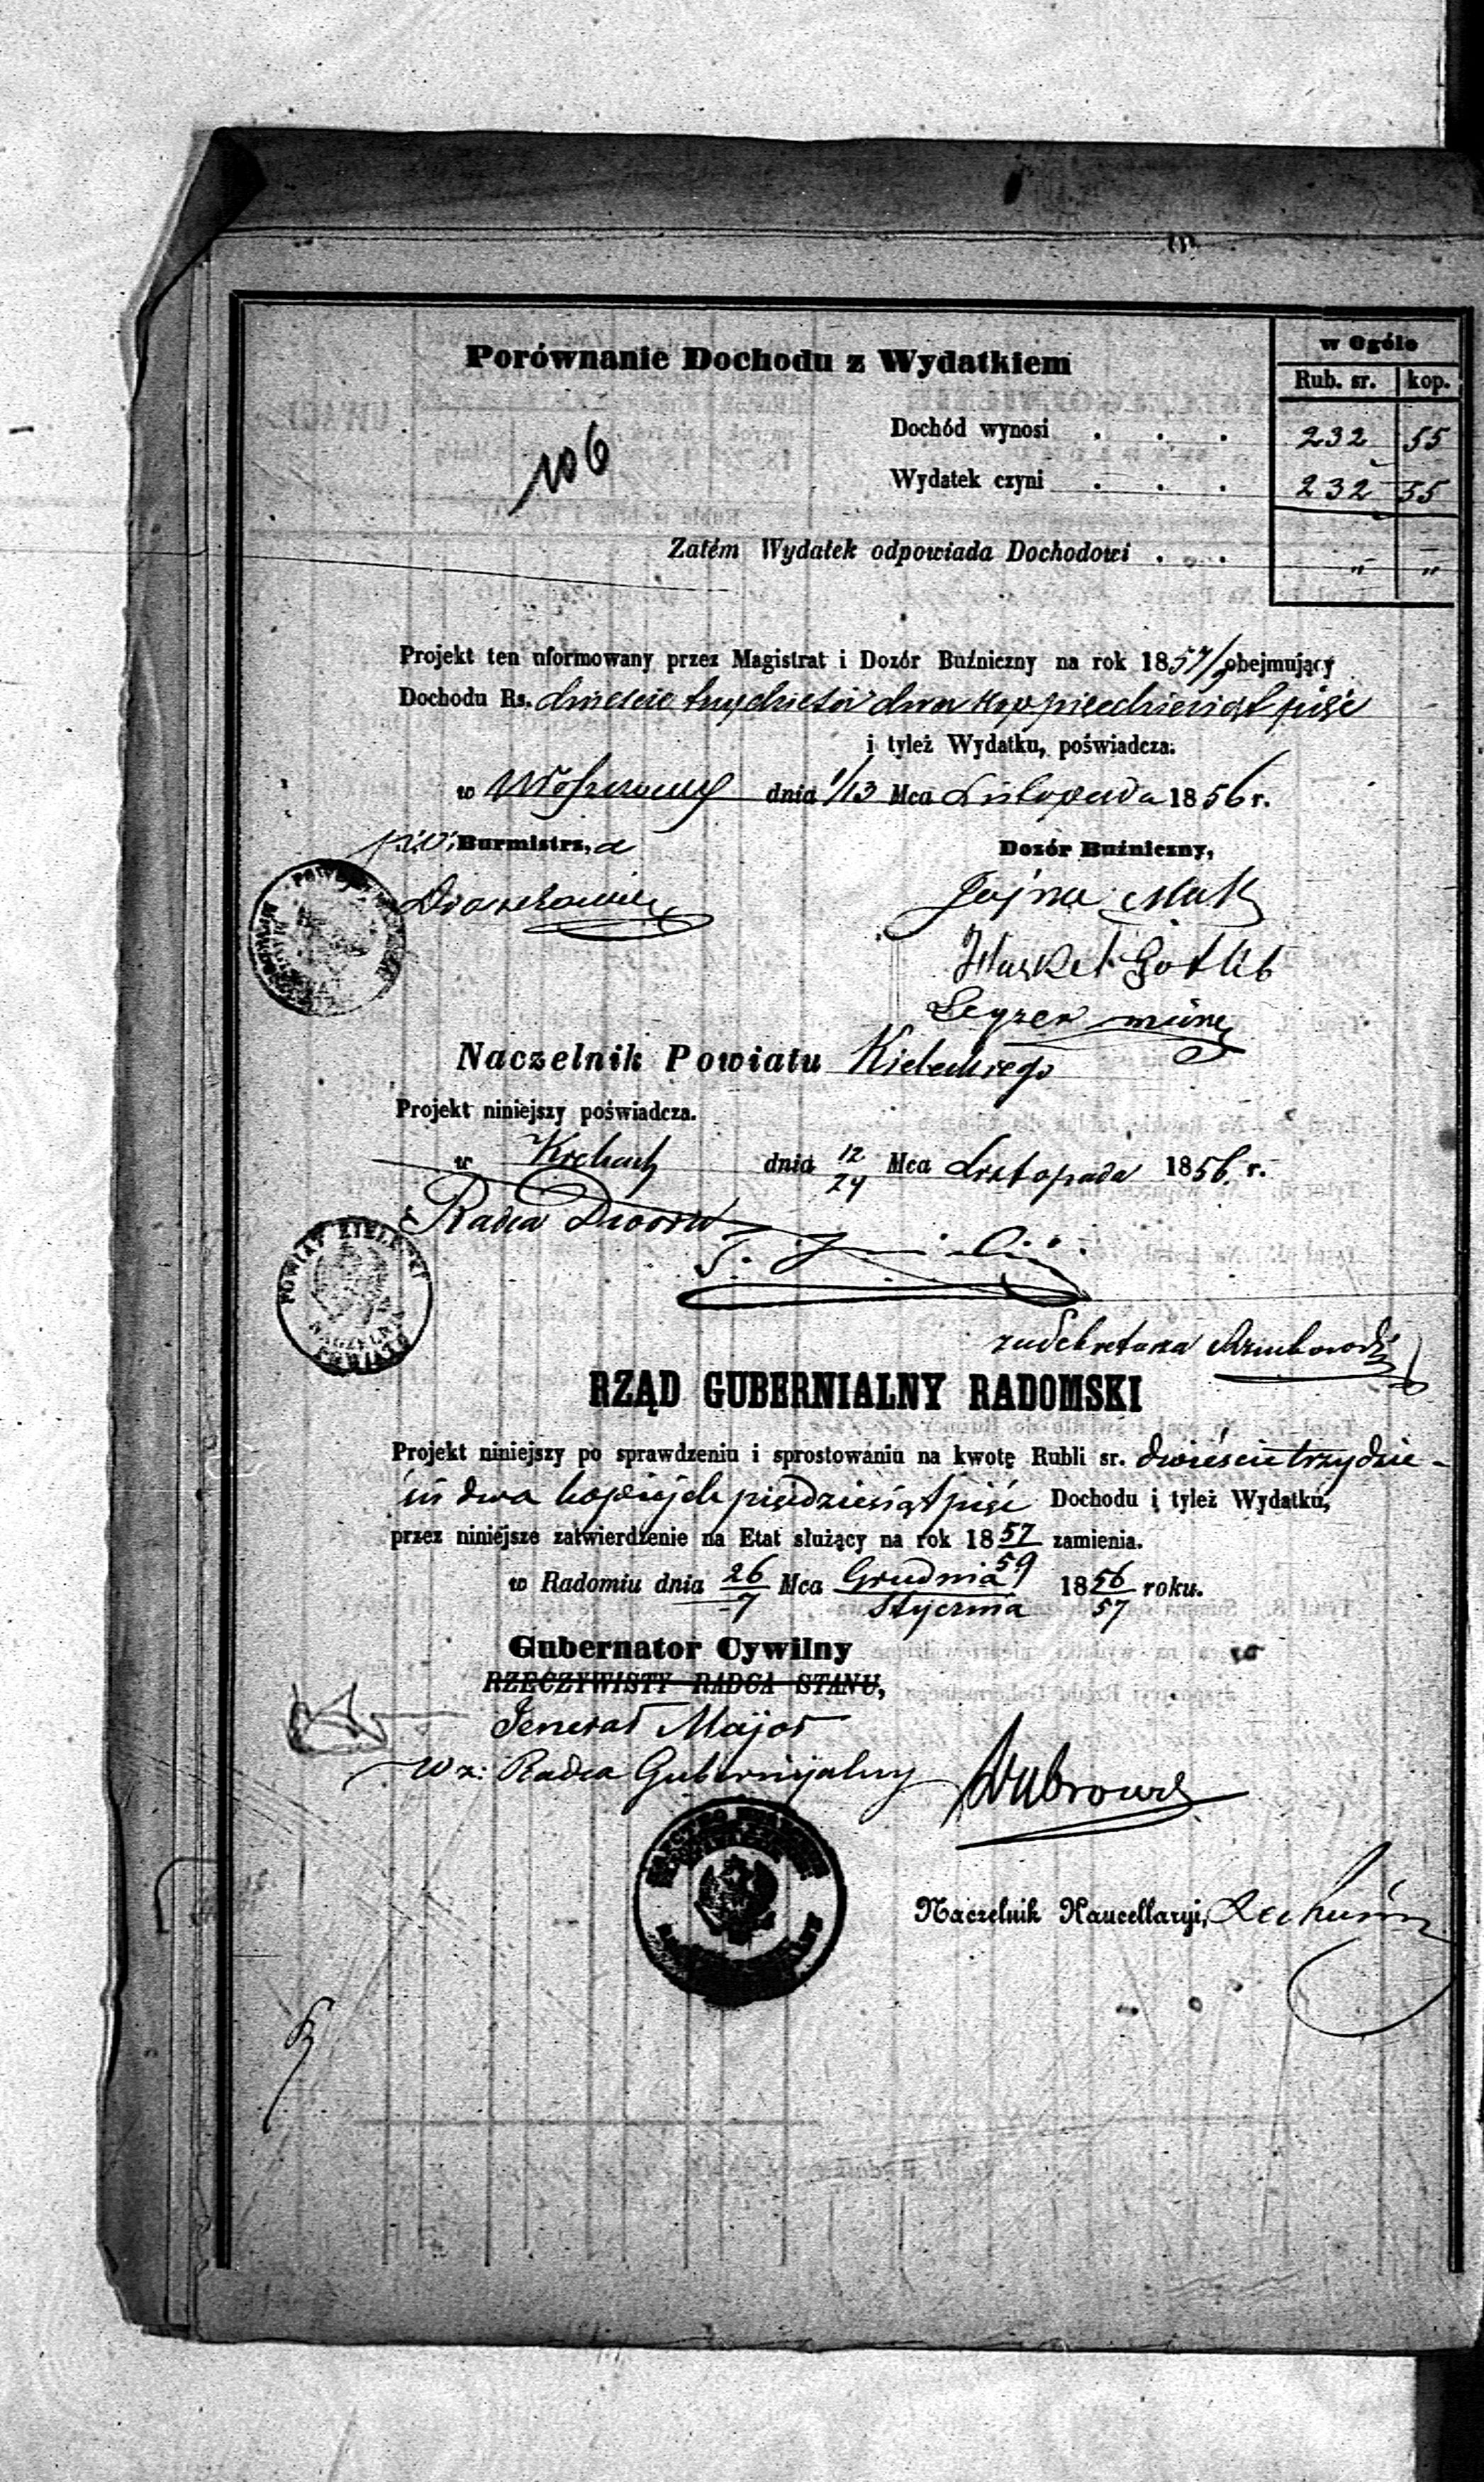 Porównanie Dochodu z Wydatkiem
w Ogóle
Rub. sr. kop.
106
Dochód wynosi . . . 232 55
Wydatek czyni . . . 232 55
Zatém Wydatek odpowiada Dochodowi . . . " "
Projekt ten uformowany przez Magistrat i Dozór Buźniczny na rok 1857/9 obejmujący
Dochodu Rs. dwieście trzydzieści dwa kop pięćdziesiąt pięć
i tyleż Wydatku, poświadcza.
w Włoszczowy dnia 1/13 Mca Listopada 1856 r.
Burmistrz, a
Dozór Buźniczny,
Jojna Mak
Gotlib
Leyzer
Naczelnik Powiatu Kieleckiego
Projekt niniejszy poświadcza.
w Kielcach dnia 12/24 Mca Listopada 1856 r.
Radca Dworu
POWIAT KIELECKI
NACZELNIK POWIATU
za Sekretarza
RZĄD GUBERNIALNY RADOMSKI
Projekt niniejszy po sprawdzeniu i sprostowaniu na kwotę Rubli sr. dwieście trzydzie-
ści dwa kopiejek pięćdziesiąt pięć Dochodu i tyleż Wydatku,
przez niniejsze zatwierdzenie na Etat służący na rok 1857/59 zamienia.
w Radomiu dnia 26/7 Mca Grudnia/Stycznia 1856/57 roku.
Gubernator Cywilny
RZECZYWISTY RADCA STANU,
Jenerał Major
w z: Radca Gubernijalny
Naczelnik Kancellaryi,